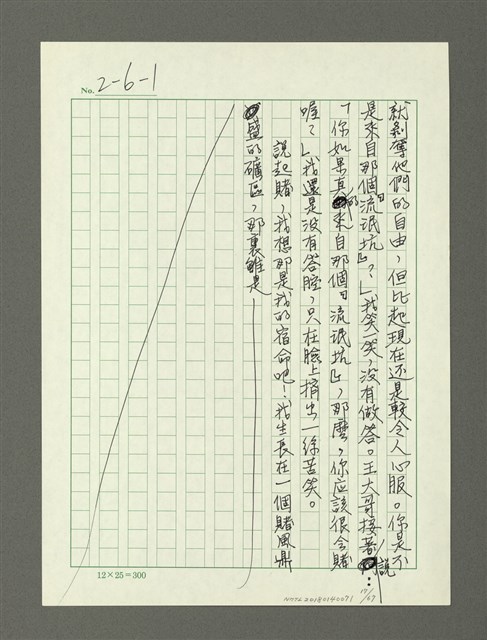 No. 2-6-1
就剝奪他們的自由,但比起現在還是較令人心服。你是不
是來自那個『流氓坑』?」我笑一笑,沒有做答。王大哥接著說:
「你如果真的來自那個『流氓坑』,那麼,你應該很會賭
喔?」我還是沒有答腔,只在臉上擠出一絲苦笑。
說起賭,我想那是我的宿命吧!我生長在一個賭風鼎
盛的礦區,那裏雖是
12×25=300
NMTL20180140071
17/67